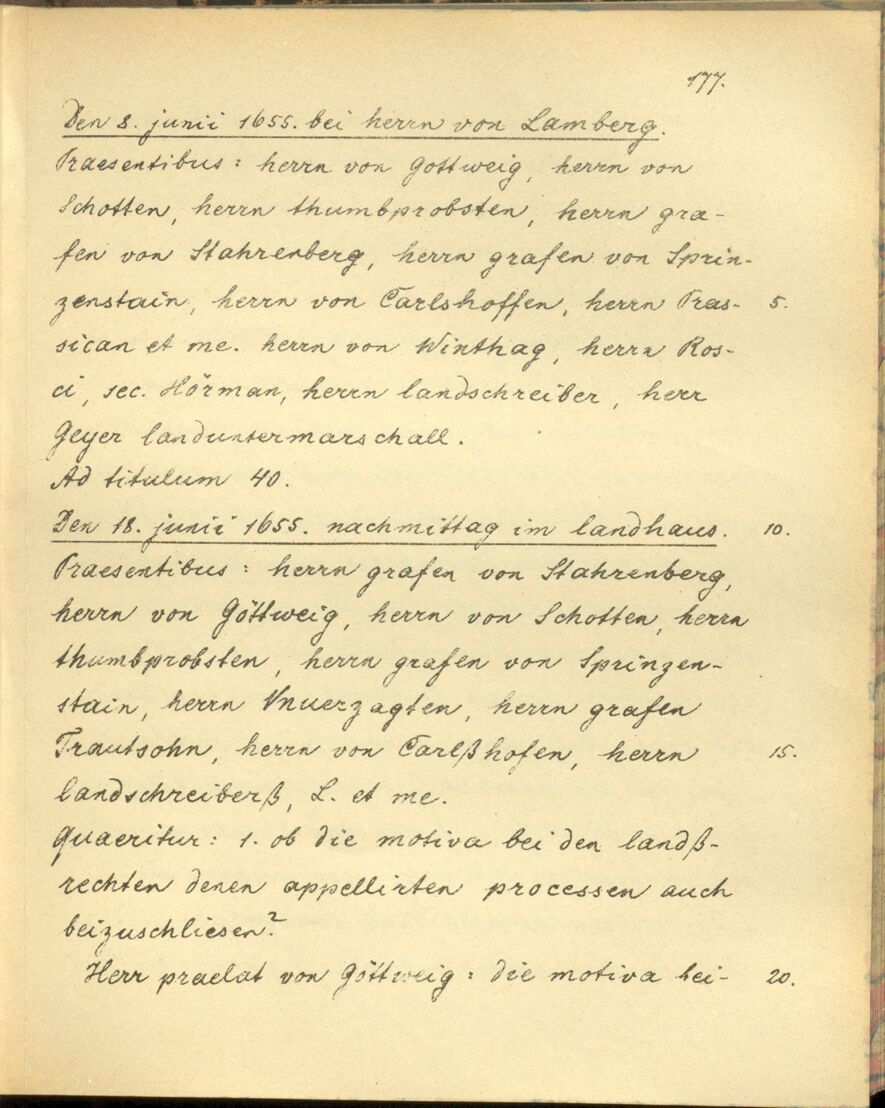 177.
Den 8. junii 1655. bei herrn von Lamberg.
Praesentibus: herrn von Gottweig, herrn von
Schotten, herrn thumbprobsten, herrn gra-
fen von Stahrenberg, herrn grafen von Sprin-
zenstain, herrn von Carlshoffen, herrn Pras- 5.
sican et me. herrn von Winthag, herrn Ros-
ci, sec. Hörman, herrn landschreiber, herr
Geyer landuntermarschall.
Ad titulum 40.
Den 18. junii 1655. nachmittag im landhaus. 10.
Praesentibus: herrn grafen von Stahrenberg,
herrn von Göttweig, herrn von Schotten, herrn
thumbprobsten, herrn grafen von Sprinzen-
stain, herrn Vnuerzagten, herrn grafen
Trautsohn, herrn von Carlßhofen, herrn 15.
landschreiberß, L. et me.
Quaeritur: 1. ob die motiva bei den landß-
rechten denen appellirten processen auch
beizuschliesen?
Herr praelat von Göttweig: die motiva bei- 20.